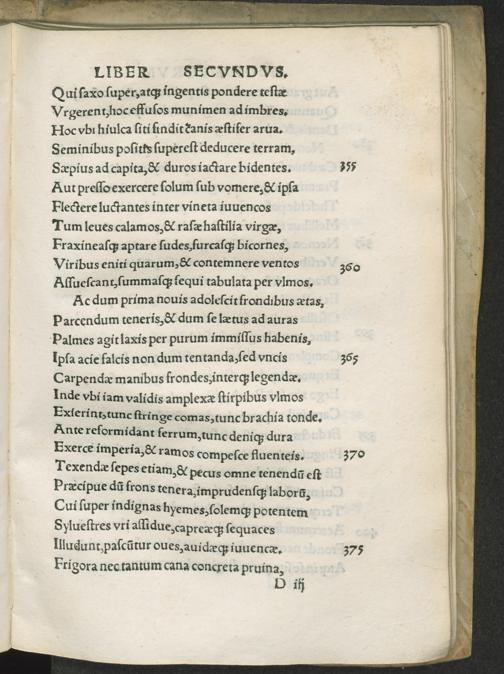 LIBER SECVNDVS.
Qui saxo super, atqꝫ ingentis pondere testæ
Vrgerent, hoc effusos munimen ad imbres.
Hoc vbi hiulca siti findit canis æstifer arua.
Seminibus positis superest deducere terram,
Sæpius ad capita, & duros iactare bidentes. 355
Aut presso exercere solum sub vomere, & ipsa
Flectere luctantes inter vineta iuuencos
Tum leues calamos, & rasæ hastilia virgæ,
Fraxineasqꝫ aptare sudes, furcasqꝫ bicornes,
Viribus eniti quarum, & contemnere ventos 360
Assuescant, summasqꝫ sequi tabulata per vlmos.
Ac dum prima nouis adolescit frondibus ætas,
Parcendum teneris, & dum se lætus ad auras
Palmes agit laxis per purum immissus habenis,
Ipsa acie falcis non dum tentanda, sed vncis 365
Carpendæ manibus frondes, interqꝫ legendæ.
Inde vbi iam validis amplexæ stirpibus vlmos
Exierint, tunc stringe comas, tunc brachia tonde.
Ante reformidant ferrum, tunc deniqꝫ dura
Exerce imperia, & ramos compesce fluenteis. 370
Texendæ sepes etiam, & pecus omne tenendū est
Præcipue dū frons tenera, imprudensqꝫ laborū,
Cui super indignas hyemes, solemqꝫ potentem
Syluestres vri assidue, capreæqꝫ sequaces
Illudunt, pascūtur oues, auidæqꝫ iuuencæ. 375
Frigora nec tantum cana concreta pruina,
D iij